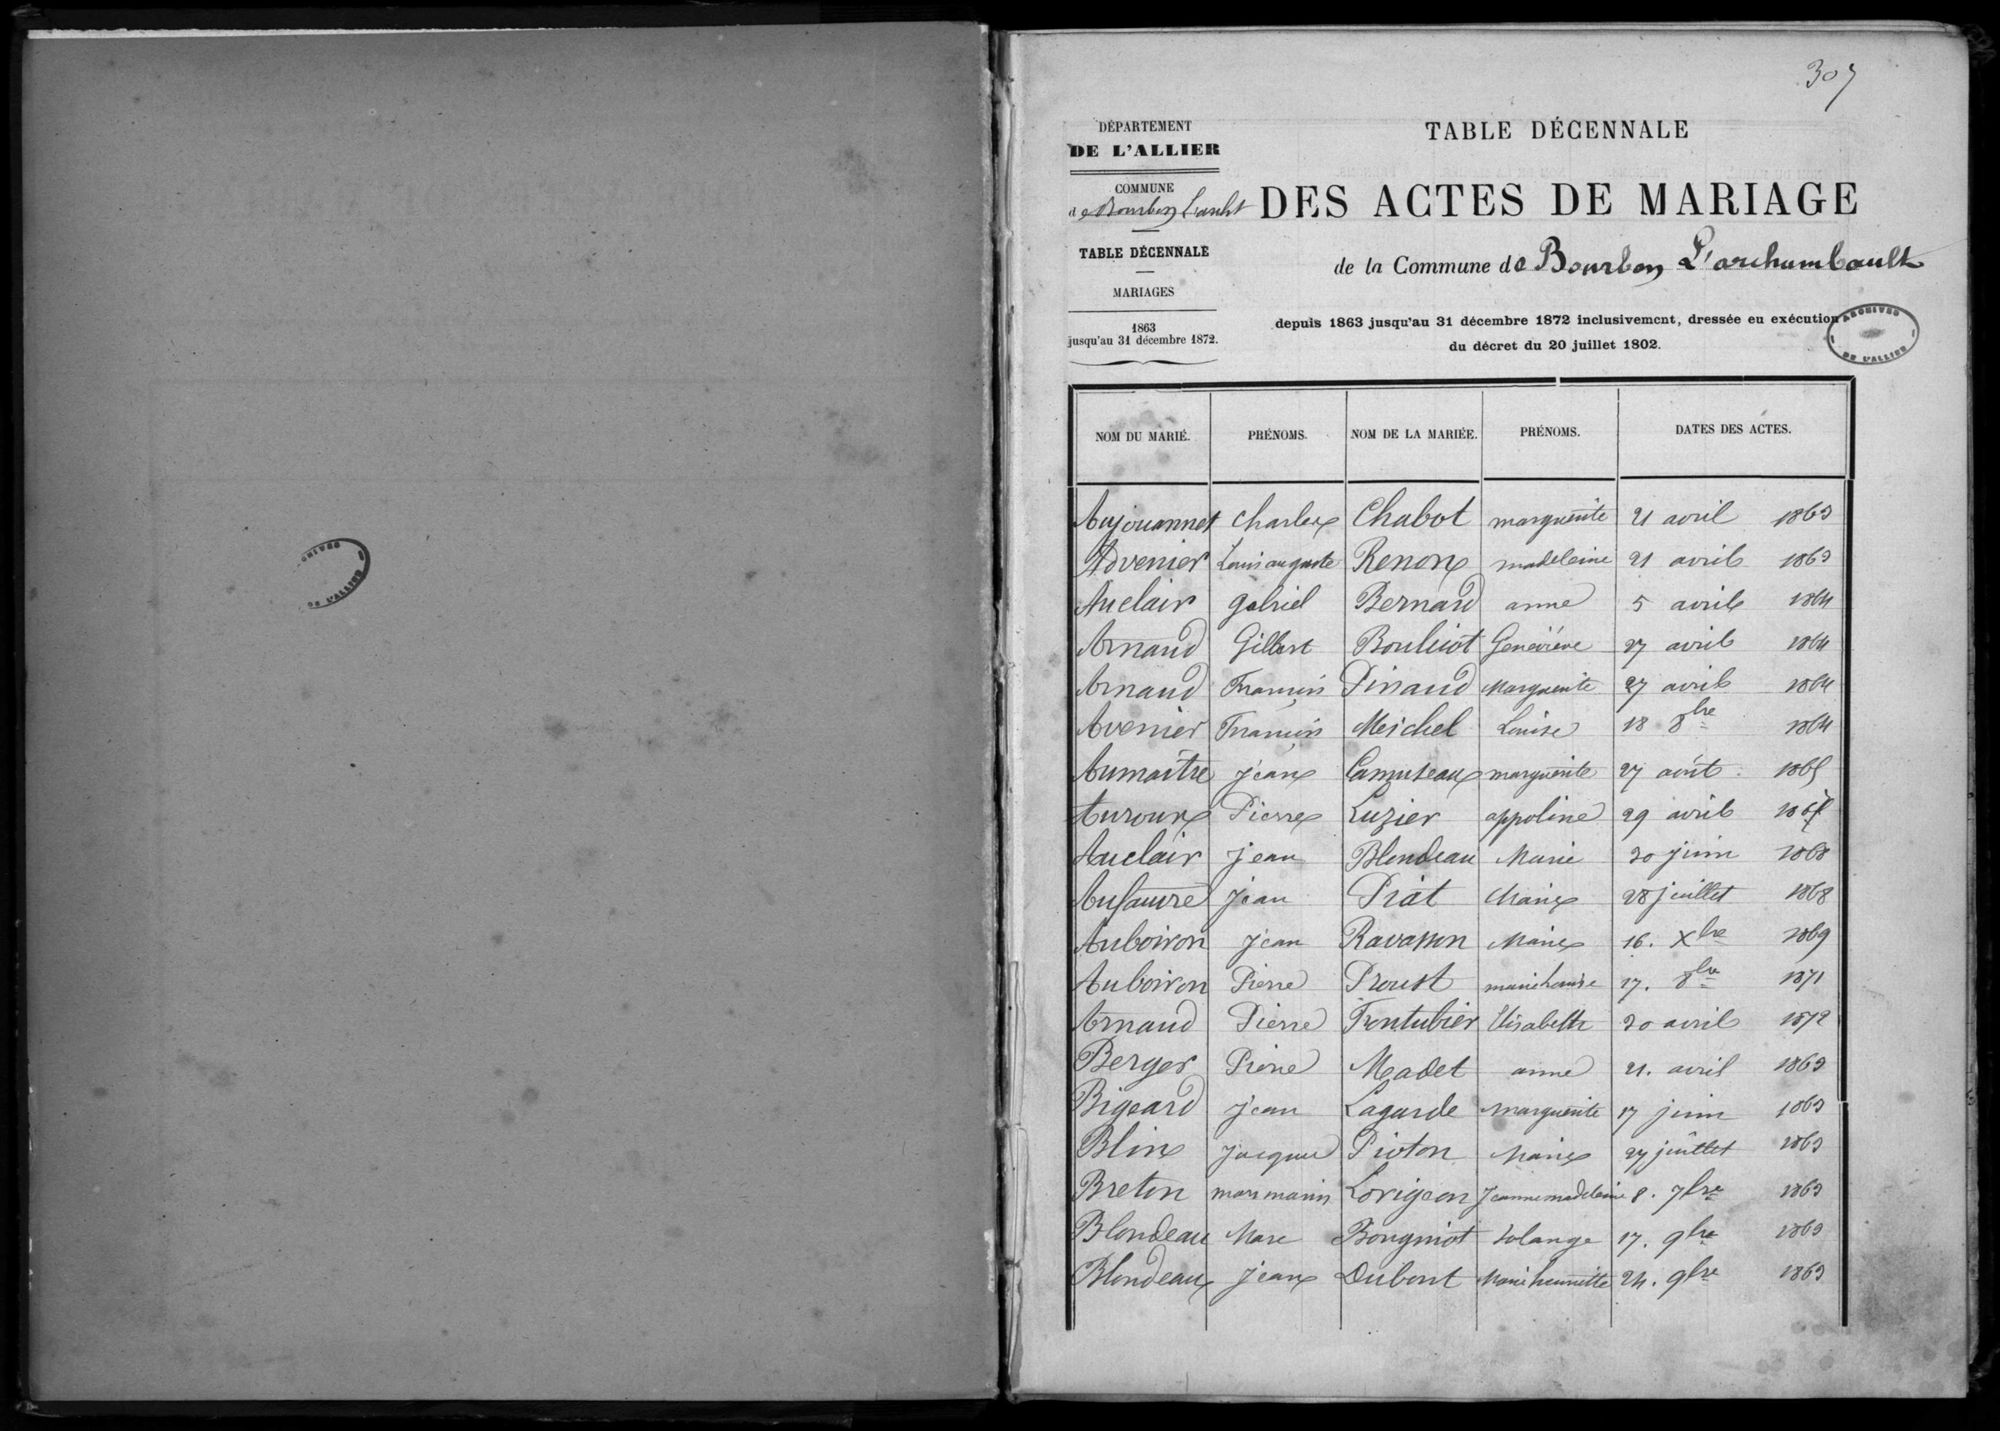 307
DÉPARTEMENT
DE L'ALLIER
COMMUNE
de Bourbon l'archt
TABLE DÉCENNALE
MARIAGES
1863
jusqu'au 31 décembre 1872.
TABLE DÉCENNALE
DES ACTES DE MARIAGE
de la Commune de Bourbon L'archambault
depuis 1863 jusqu'au 31 décembre 1872 inclusivement, dressée en exécution
du décret du 20 juillet 1802.
ARCHIVES DE L'ALLIER
CHIVES DE L'ALLIER
NOM DU MARIÉ. PRÉNOMS. NOM DE LA MARIÉE. PRÉNOMS. DATES DES ACTES.
Aujouannet Charles Chabot marguerite 21 avril 1863
Advenier Louis auguste Renon madeleine 21 avril 1863
Auclair gabriel Bernard anne 5 avril 1864
Arnaud Gilbert Bouliiot Geneviève 27 avril 1864
Arnaud François Pinaud Marguerite 27 avril 1864
Avenier François Meichel Louise 18 8bre 1864
Aumaître jean Camuseau marguerite 27 août 1865
Auroux Pierre Luzier appoline 29 avril 1867
Auclair jean Blondeau Marie 30 juin 1868
Aufauvre jean Piat Marie 28 juillet 1868
Auboiron jean Ravasson Marie 16. Xbre 1869
Auboiron Pierre Proust marie louise 17. 8bre 1871
Arnaud Pierre Trontubier Elisabeth 30 avril 1872
Berger Pierre Madet anne 21. avril 1863
Bigeard jean Lagarde Marguerite 17 juin 1863
Blin jacques Pioton Marie 27 juillet 1863
Breton marc marin Lorigeon Jeanne madeleine 8. 7bre 1863
Blondeau Marc Bougniot Solange 17. 9bre 1863
Blondeau jean Dubost Marie henriette 24. 9bre 1863